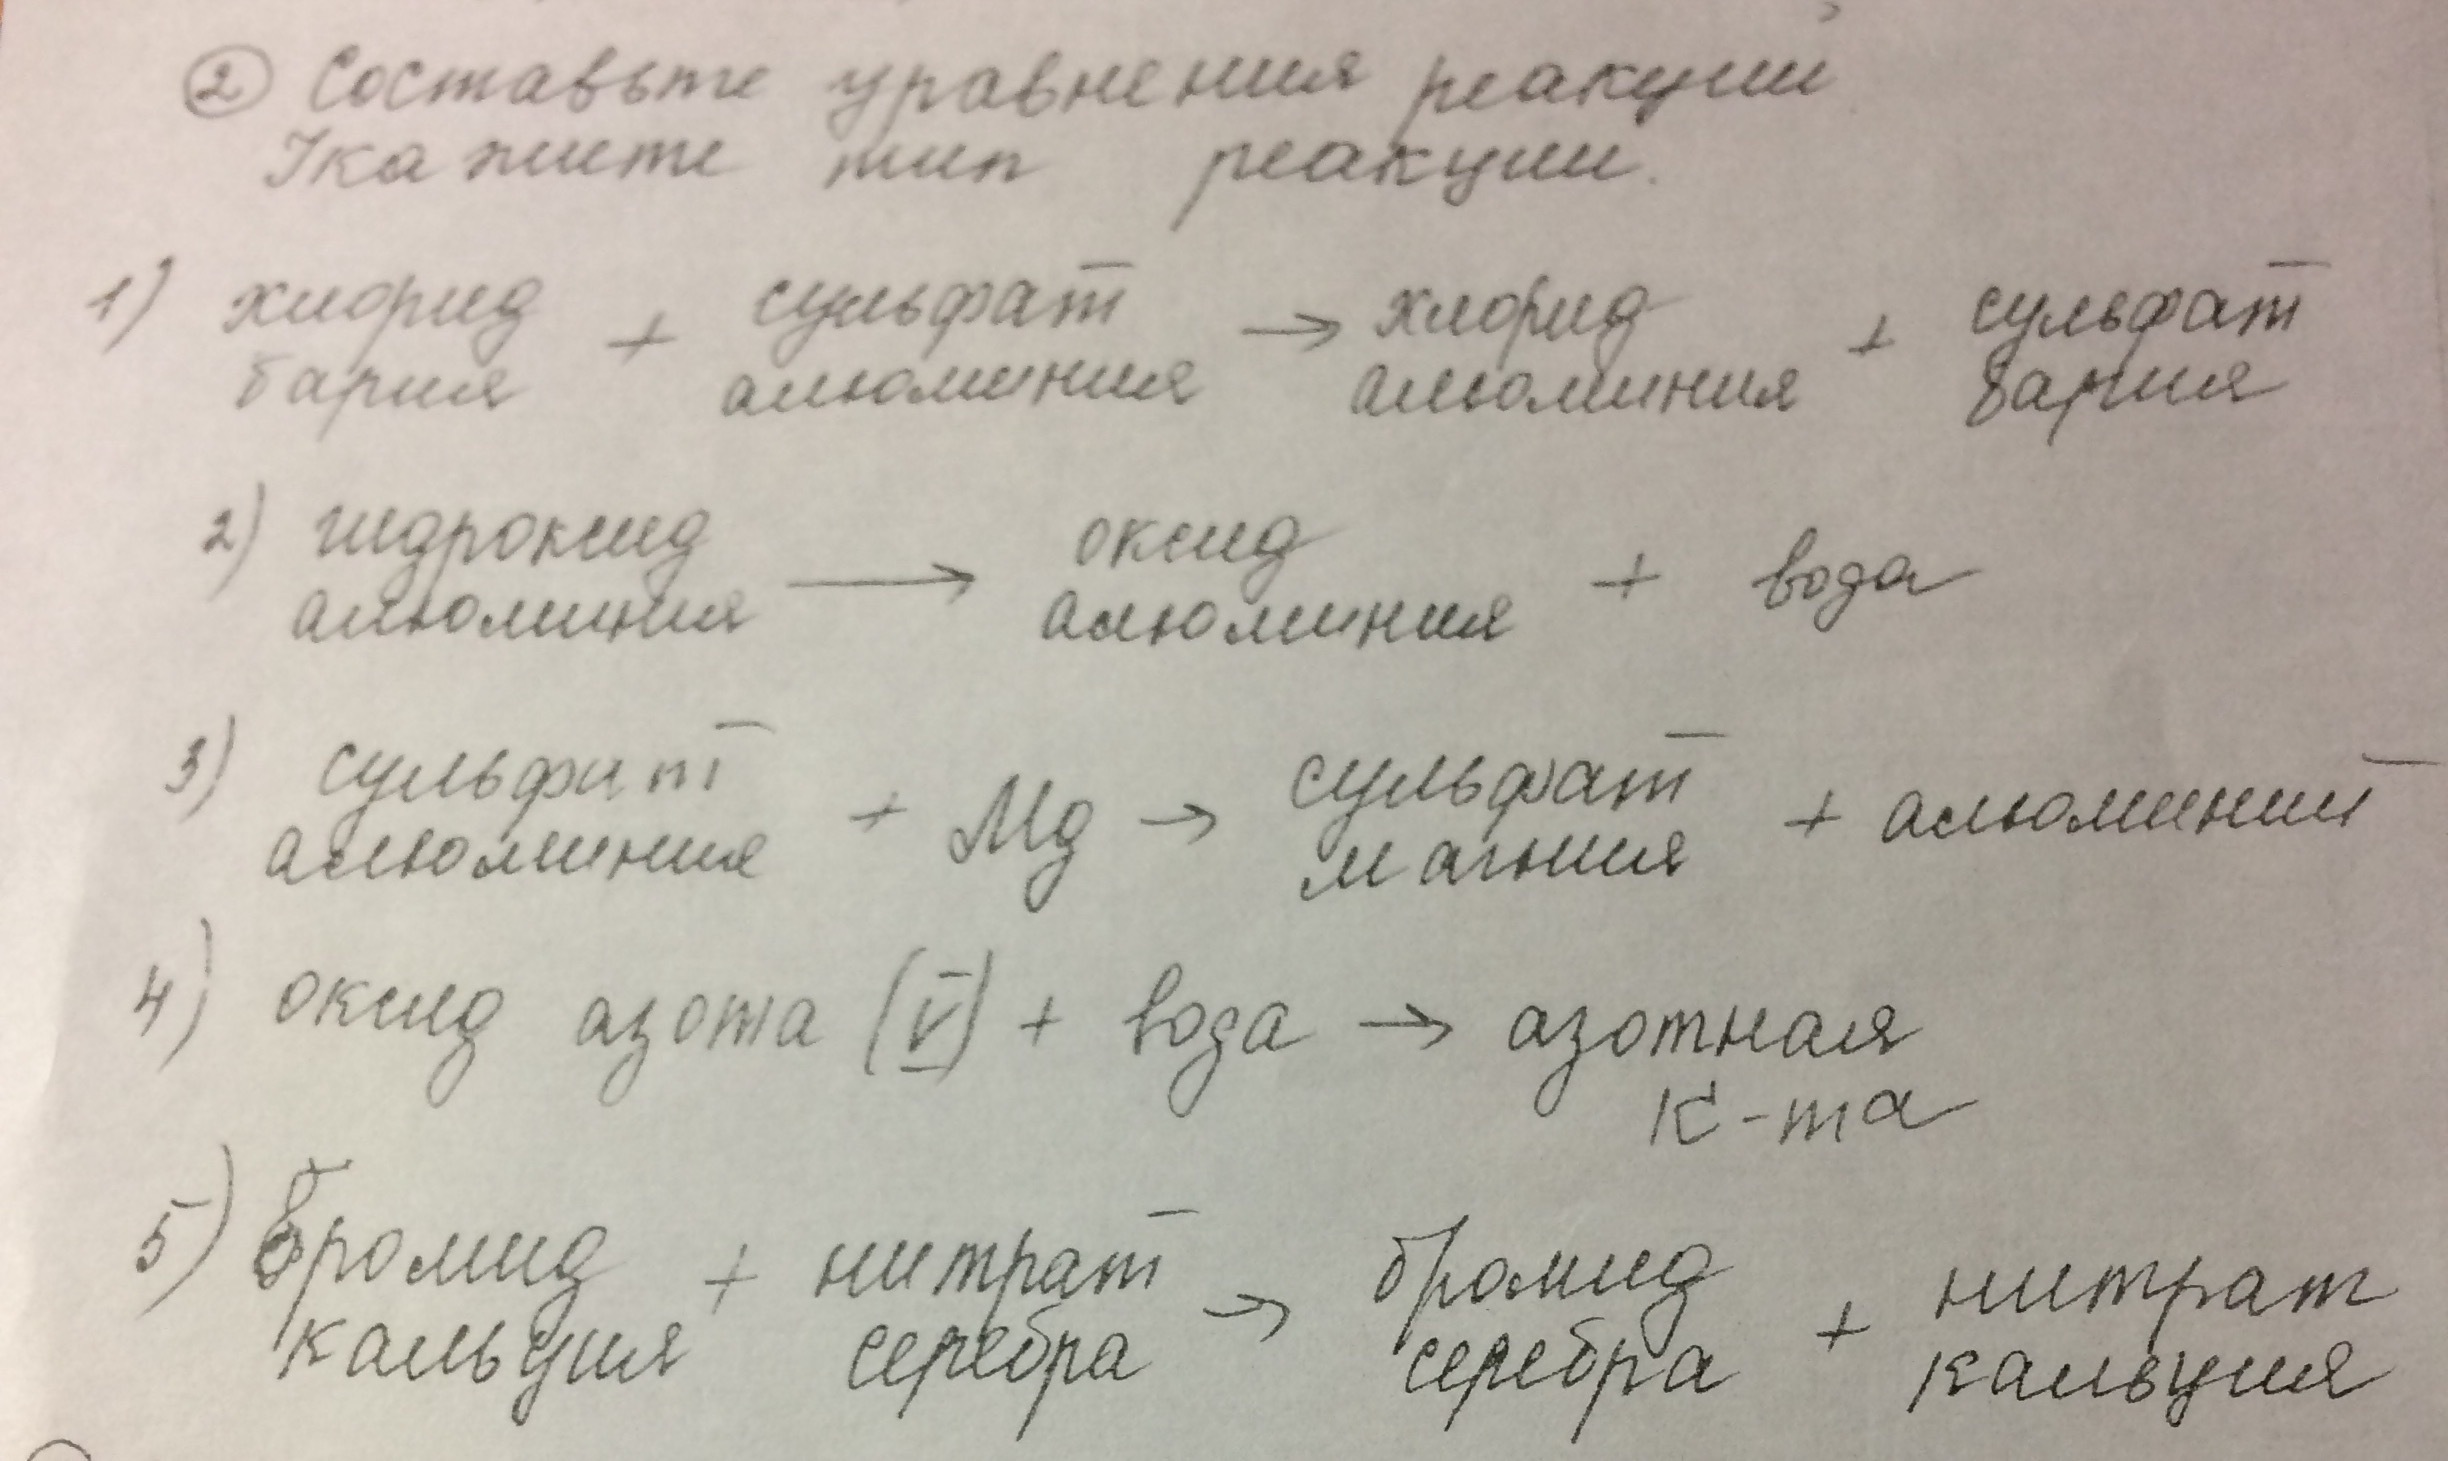 ② Составьте уравнения реакций
Укажите тип реакции.
1) хлорид + сульфат → хлорид + сульфат
бария алюминия алюминия бария
2) гидроксид → оксид + вода
алюминия алюминия
3) сульфат + Mg → сульфат + алюминий
алюминия магния
4) оксид азота (V) + вода → азотная
к-та
5) бромид + нитрат → бромид + нитрат
кальция серебра серебра кальция